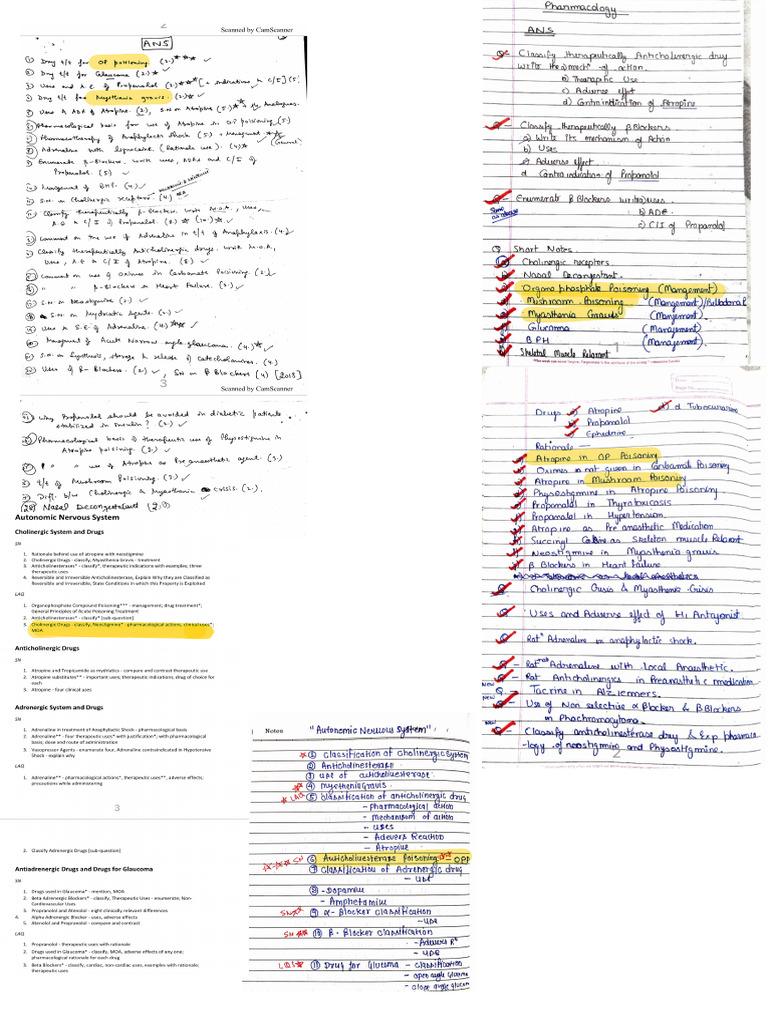 2
Scanned by CamScanner
ANS
① Drug t/t for OP poisoning. (2.)***
② Drug t/t for Glaucoma (2.)*
③ Uses and A.E of Propanolol (2.) [+ indications & C/I] (5)
④ Drug t/t for Myasthenia gravis. (2.)*
Uses & ADR of Atropine. (2), S.N on Atropine (5)
Pharmacological basis for use of Atropine in OP poisoning (5)
Pharmacotherapy of Anaphylactic Shock (5) + Management
Adrenaline with lignocaine (Rationale use). (4)
Enumerate β-Blockers. Work uses, ADRs and C/I of
Propanolol. (5)
Management of BHP. (4)
S.N on Cholinergic receptors. (4)
Classify therapeutically β-Blockers. Work M.O.A, Uses,
A.E & C/I of Propanolol. (8) (10)
Comment on the use of Adrenaline in t/t of Anaphylaxis. (4.)
Classify therapeutically Anticholinergic drugs. Work M.O.A,
Uses, A.E & C/I of Atropine. (8.)
Comment on use of Oximes in Carbamate Poisoning. (2.)
" " β-Blockers in Heart Failure. (2.)
S.N on Neostigmine (2.)
S.N on Mydriatic Agents. (2.)
Uses & S.E of Adrenaline. (4)***
Management of Acute Narrow angle glaucoma. (4.)*
S.N on Synthesis, storage & release of Catecholamines. (4.)
Uses of β-Blockers. (2), SN on β Blockers (4) [2018]
Scanned by CamScanner
3
Why Propanolol should be avoided in diabetic patients
stabilized on insulin? (2.)
Pharmacological basis of therapeutic use of Physostigmine in
Atropine poisoning. (2.)
" " use of Atropine as Pre anaesthetic agent. (2.)
t/t of Mushroom Poisoning. (2.)
Diff. b/w Cholinergic & Myasthenia Crisis. (2.)
(28) Nasal Decongestant (2.)
Autonomic Nervous System
Cholinergic System and Drugs
SN
1. Rationale behind use of atropine with neostigmine
2. Cholinergic Drugs - classify, Myasthenia Gravis - treatment
3. Anticholinesterases* - classify*, therapeutic indications with examples; three
therapeutic uses
4. Reversible and Irreversible Anticholinesterases, Explain Why they are Classified as
Reversible and Irreversible, State Conditions in which this Property is Exploited
LAQ
1. Organophosphate Compound Poisoning*** - management; drug treatment*;
General Principles of Acute Poisoning Treatment
2. Anticholinesterases* - classify* [sub-question]
3. Cholinergic Drugs - classify, Neostigmine* - pharmacological actions, clinical uses*;
MOA
Anticholinergic Drugs
SN
1. Atropine and Tropicamide as mydriatics - compare and contrast therapeutic use
2. Atropine substitutes** - important uses; therapeutic indications, drug of choice for
each
3. Atropine - four clinical uses
Adrenergic System and Drugs
SN
1. Adrenaline in treatment of Anaphylactic Shock - pharmacological basis
2. Adrenaline** - Four therapeutic uses* with justification*; with pharmacological
basis; dose and route of administration
3. Vasopressor Agents - enumerate four, Adrenaline contraindicated in Hypotensive
Shock - explain why
LAQ
1. Adrenaline** - pharmacological actions*, therapeutic uses**, adverse effects;
precautions while administering
3
2. Classify Adrenergic Drugs [sub-question]
Antiadrenergic Drugs and Drugs for Glaucoma
SN
1. Drugs used in Glaucoma* - mention, MOA
2. Beta Adrenergic Blockers* - classify, Therapeutic Uses - enumerate; Non-
Cardiovascular Uses
3. Propranolol and Atenolol - eight clinically relevant differences
4. Alpha Adrenergic Blocker - uses, adverse effects
5. Atenolol and Propranolol - compare and contrast
LAQ
1. Propranolol - therapeutic uses with rationale
2. Drugs used in Glaucoma* - classify, MOA, adverse effects of any one;
pharmacological rationale for each drug
3. Beta Blockers* - classify, cardiac, non-cardiac uses, examples with rationale;
therapeutic uses
Notes "Autonomic Nervous System"
① Classification of cholinergic system
② Anticholinesterase
③ use of anticholinesterase.
④ Myethenia Gravis.
LAQ ⑤ Classification of anticholinergic drug
- Pharmacological action
- Mechanism of action
- uses
- Adevers Reaction
- Atropine
SN ⑥ Anticholinesterase Poisoning OPP
⑦ Classification of Adrenergic drug
- use
⑧ - Dopamine
- Amphetamine
SN ⑨ α- Blocker classification
- use
SN ⑩ β- Blocker classification
- Adverse R*
- use
LAQ ⑪ Drug for Glucoma - classification
- open angle glucoma
- close angle glucoma
Pharmacology
ANS
Q- Classify therapeutically Anticholinergic drug
Write the mech of action
b) Therapeutic Use
c) Adverse effect
d) Contraindication of Atropine
Q- Classify therapeutically β Blockers
a) Write Its mechanism of Action
b) Uses
c) Adverse effect
d Contraindication of Propanolol
Q- Enumerate β Blockers write uses
Same as above
b) ADR
c) C/I of Propanolol
Q Short Notes.
Cholinergic receptors.
Nasal Decongestant.
Organo phosphate Poisoning (Mangement)
Mushroom Poisoning (Mangement)/Belladona P.
Myasthenia Gravis (Mangement).
Glucoma (Management)
BPH (Management).
Skeletal Muscle Relaxant
1
Drugs Atropine d Tubocurarine
Propanolol
Ephedrine
Rationale —
Atropine in OP Poisoning
Oximes is not given in Carbamate Poisoning
Atropine in Mushroom Poisoning
Physostigmine in Atropine Poisoning
Propanolol in Thyrotoxicosis
Propanolol in Hypertension.
Atropine as Pre anesthetic Medication
Succinyl Coline as Skeleton muscle Relaxant
Neostigmine in Myasthenia gravis
β Blockers in Heart Failure
Q- Cholinergic Crisis & Myasthenia Crisis
Q- Uses and Adverse effect of H₁ Antagonist
Q- Rat Adrenaline in anaphylactic shock.
Q- Rat Adrenaline with local Anaesthetic.
Q- Rat Anticholinergics in Preanasthetic medication
New Q- Tacrine in Alziemers.
New Q- Use of Non selective α Blocker & β Blockers
in Phaochromocytoma.
New Q- Classify anticholinesterase drug & Exp pharmaco
-logy of neostigmine and Physostigmine.
2